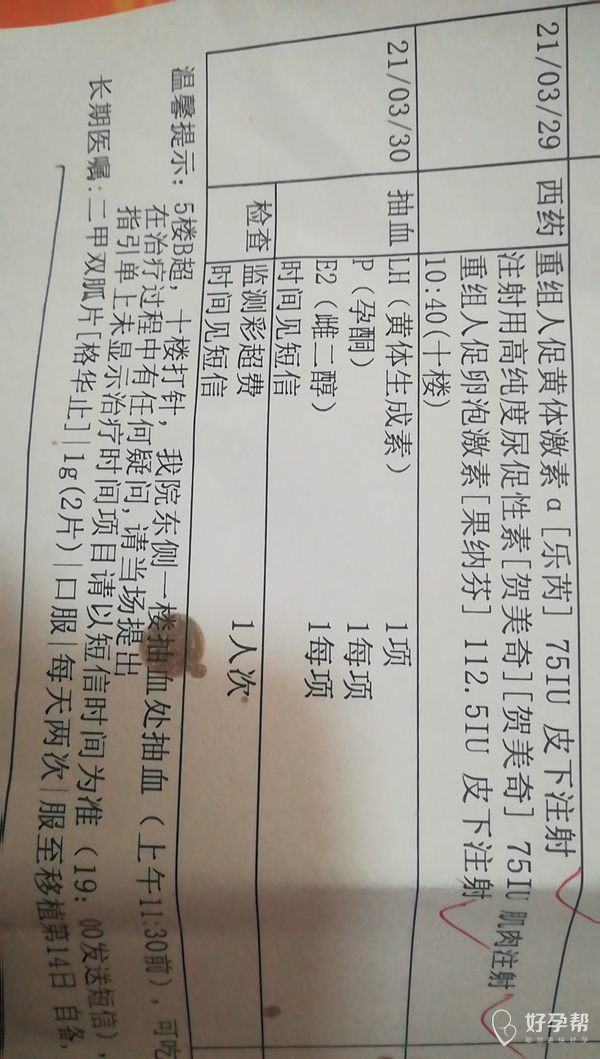 21/03/29 西药 重组人促黄体激素α [乐芮] 75IU 皮下注射
注射用高纯度尿促性素[贺美奇][贺美奇] 75IU 肌肉注射
重组人促卵泡激素[果纳芬] 112.5IU 皮下注射
10:40(十楼)
21/03/30 抽血 LH(黄体生成素) 1项
P(孕酮) 1每项
E2(雌二醇) 1每项
时间见短信
检查 监测彩超费 1人次
时间见短信
温馨提示: 5楼B超, 十楼打针, 我院东侧一楼抽血处抽血(上午11:30前), 可吃
在治疗过程中有任何疑问, 请当场提出
指引单上未显示治疗时间项目请以短信时间为准(19:00发送短信),
长期医嘱: 二甲双胍片[格华止]|1g(2片)|口服|每天两次|服至移植第14日 自备,
好孕帮
助您更快好孕